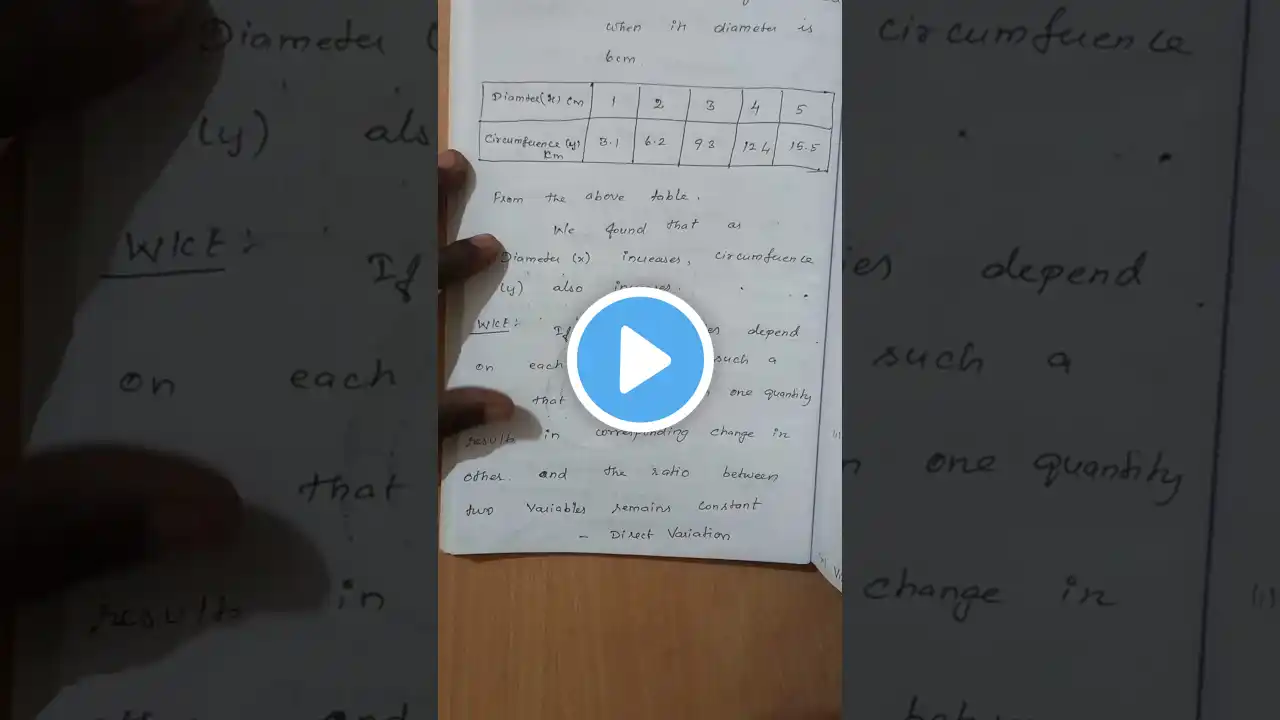 when in diameter is
6cm.
Diamter(x) cm 1 2 3 4 5
Circumfuence (y) cm 3.1 6.2 9.3 12.4 15.5
From the above table.
We found that as
Diameter (x) increases, circumfuence
(y) also increases.
WKT: If depend
on each such a
that one quantity
results in corresponding change in
other. and the ratio between
two variables remains constant
- Direct Variation